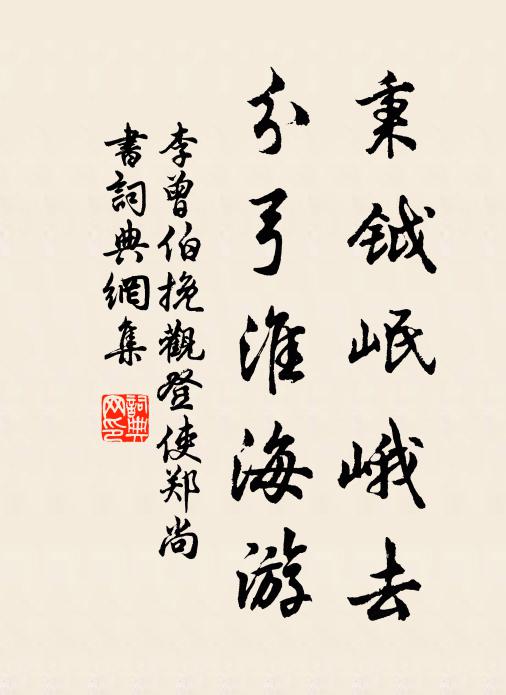 秉鉞岷峨去
分弓淮海游
李曾伯挽觀登使郑尚
書詞典網集
詞典网印